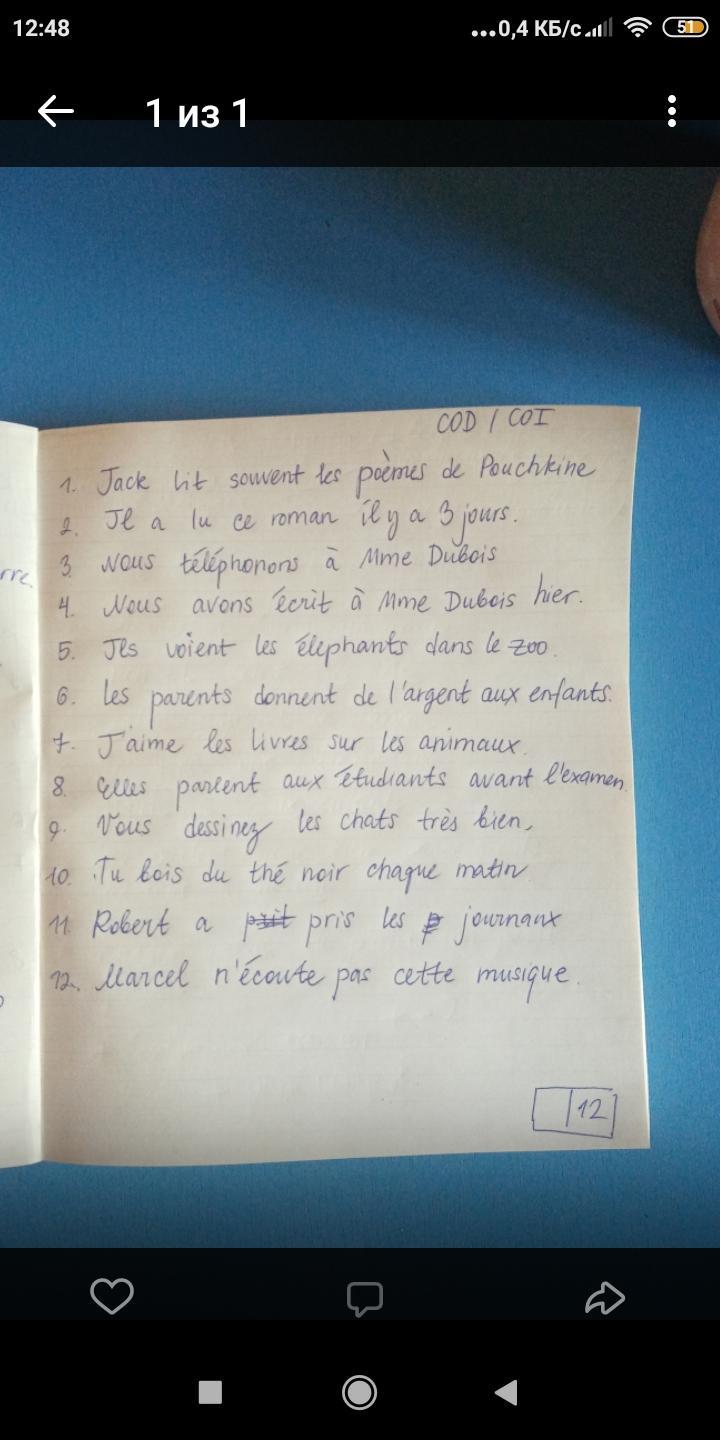 12:48 ...0,4 КБ/с 51
1 из 1
COD / COI
rre.
1. Jack lit souvent les poèmes de Pouchkine
2. Il a lu ce roman il y a 3 jours.
3. Nous téléphonons à Mme Dubois
4. Nous avons écrit à Mme Dubois hier.
5. Ils voient les éléphants dans le zoo.
6. Les parents donnent de l'argent aux enfants.
7. J'aime les livres sur les animaux.
8. Elles parlent aux étudiants avant l'examen.
9. Vous dessinez les chats très bien.
10. Tu bois du thé noir chaque matin
11. Robert a pris les journaux
12. Marcel n'écoute pas cette musique.
|12